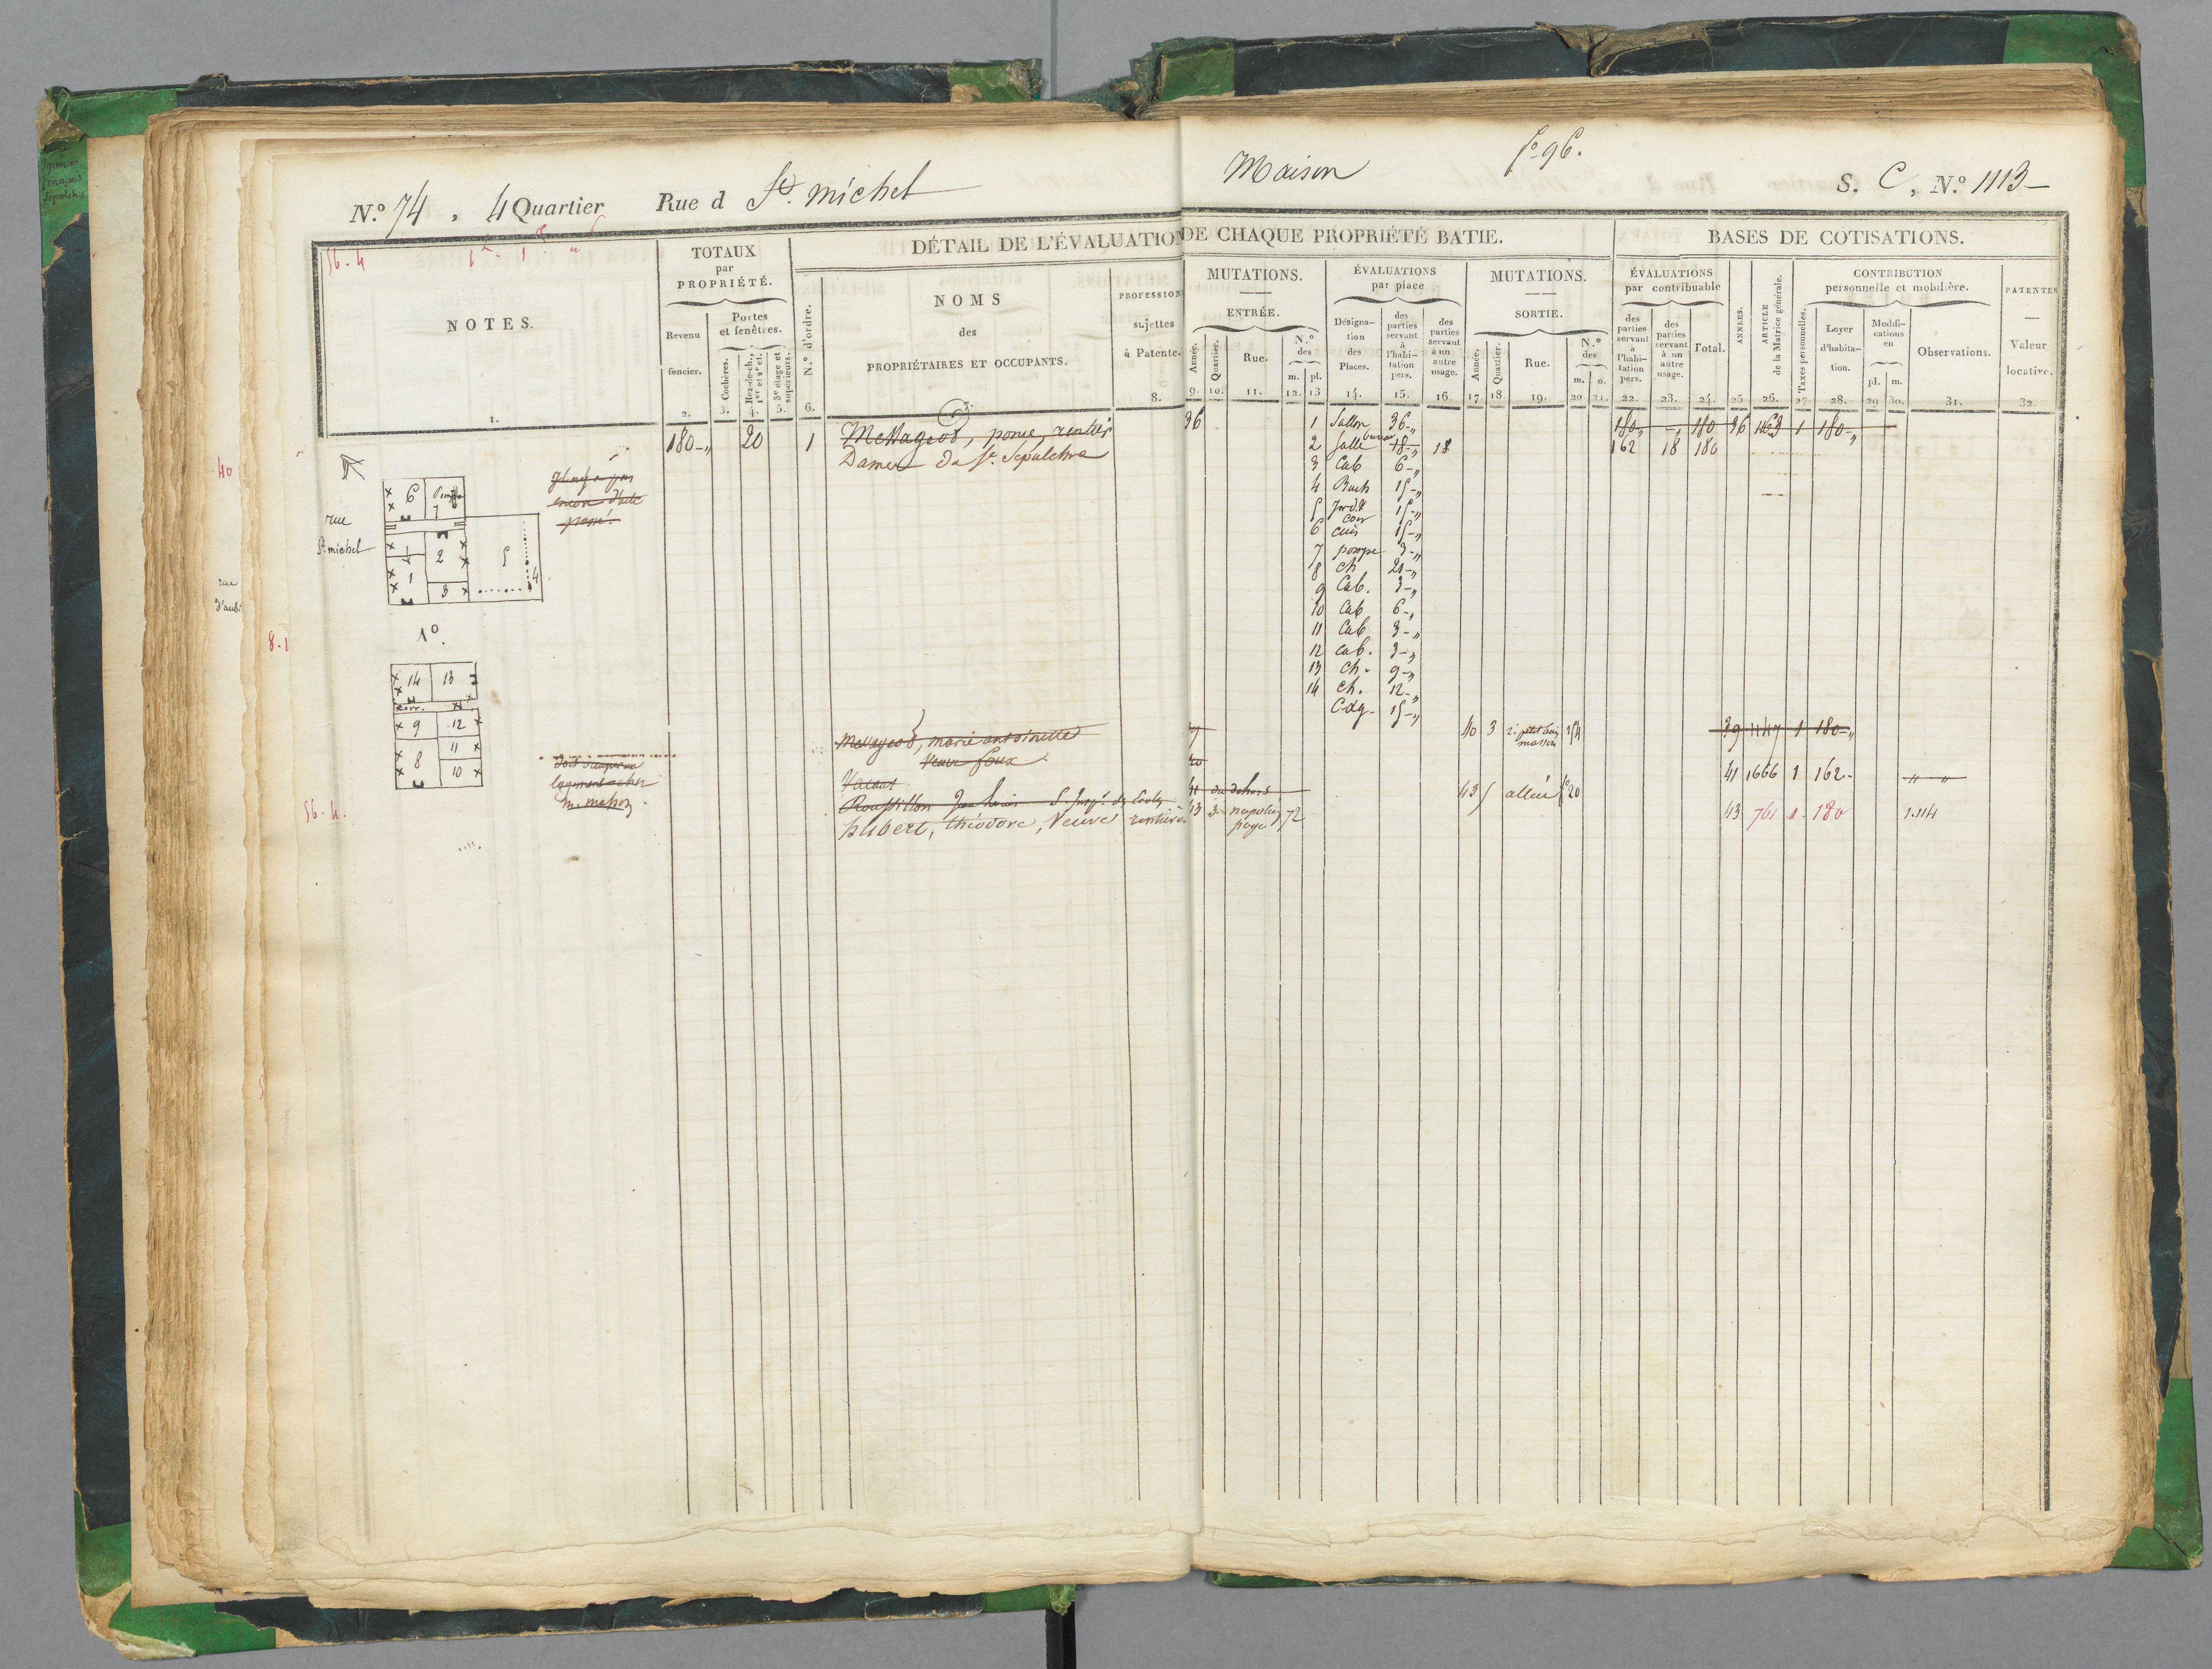 N.º 74, 4 Quartier Rue d St. michel
Maison
fº 96.
S. C, N.º 1113
DÉTAIL DE L'ÉVALUATION DE CHAQUE PROPRIÉTÉ BATIE.
BASES DE COTISATIONS.
56.4
NOTES.
1.
TOTAUX
par
PROPRIÉTÉ.
Revenu
foncier.
2.
Portes
et fenêtres.
Cochères.
3.
Rez-de-ch.,
1er et 2e ét.
4.
3e étage et
supérieurs.
5.
N.º d'ordre.
6.
NOMS
des
PROPRIÉTAIRES ET OCCUPANTS.
7.
PROFESSION
sujettes
à Patente.
8.
MUTATIONS.
ENTRÉE.
Année.
9.
Quartier.
10.
Rue.
11.
N.º
des
m. pl.
12. 13
ÉVALUATIONS
par place
Désigna-
tion
des
Places.
14.
des
parties
servant
à
l'habi-
tation
pers.
15.
des
parties
servant
à un
autre
usage.
16.
MUTATIONS.
SORTIE.
Année.
17.
Quartier.
18.
Rue.
19.
N.º
des
m. o.
20 21.
ÉVALUATIONS
par contribuable
des
parties
servant
à
l'habi-
tation
pers.
22.
des
parties
servant
à un
autre
usage.
23.
Total.
24.
ANNÉES.
25
ARTICLE
de la Matrice générale.
26.
CONTRIBUTION
personnelle et mobilière.
Taxes personnelles.
27.
Loyer
d'habita-
tion.
28.
Modifi-
cations
en
pl. m.
29 30.
Observations.
31.
PATENTES
Valeur
locative.
32.
180-„ 20 1 Messageot, rentier 36
Dames du St. Sépulchre
1 Sallon 36-„
2 Salle 18-„ 18
3 Cab 6-„
4 Buch 15-„
5 Jard. & cour 15-„
6 cuis 15-„
7 pompe 3-„
8 ch 21-„
9 Cab. 3-„
10 Cab 6-„
11 Cab 3-„
12 Cab. 3-„
13 ch. 9-„
14 ch. 12-„
Cdg. 15-„
180„ -„ 180 36 1163 1 180-„
162 18 180
rue
St. michel
6 7
2
1 3 5 4
1º.
14 13
corr.
9 12
8 11
10
Messageot, marie antoinette
Veuve
40 3 r. petit
39 1147 1 180-„
Vacant
40
logement chez
41 du dehors
43 5 20
41 1666 1 162-
hubert, théodore, Veuve rentière 43 3 napoléon 72
43 761 1 180
1.114
56.4.
40
rue
8.1